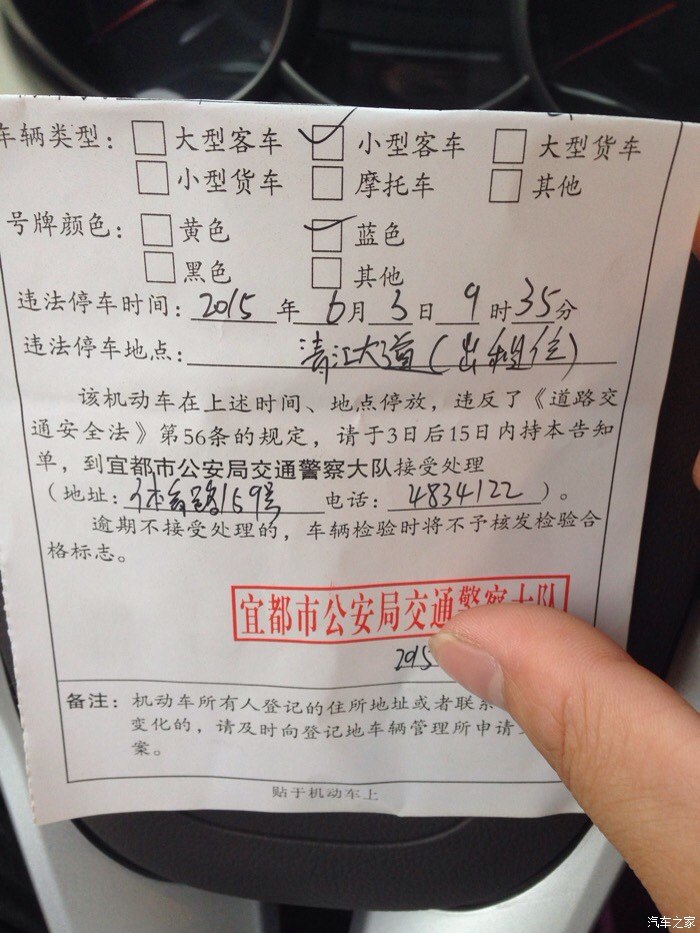 车辆类型：□大型客车 ☑小型客车 □大型货车
□小型货车 □摩托车 □其他
号牌颜色：□黄色 ☑蓝色
□黑色 □其他
违法停车时间：2015年6月3日9时35分
违法停车地点：清江大道（出租位）
该机动车在上述时间、地点停放，违反了《道路交
通安全法》第56条的规定，请于3日后15日内持本告知
单，到宜都市公安局交通警察大队接受处理
（地址：体育路159号 电话：4834122）。
逾期不接受处理的，车辆检验时将不予核发检验合
格标志。
宜都市公安局交通警察大队
2015
备注：机动车所有人登记的住所地址或者联系
变化的，请及时向登记地车辆管理所申请
案。
贴于机动车上
汽车之家